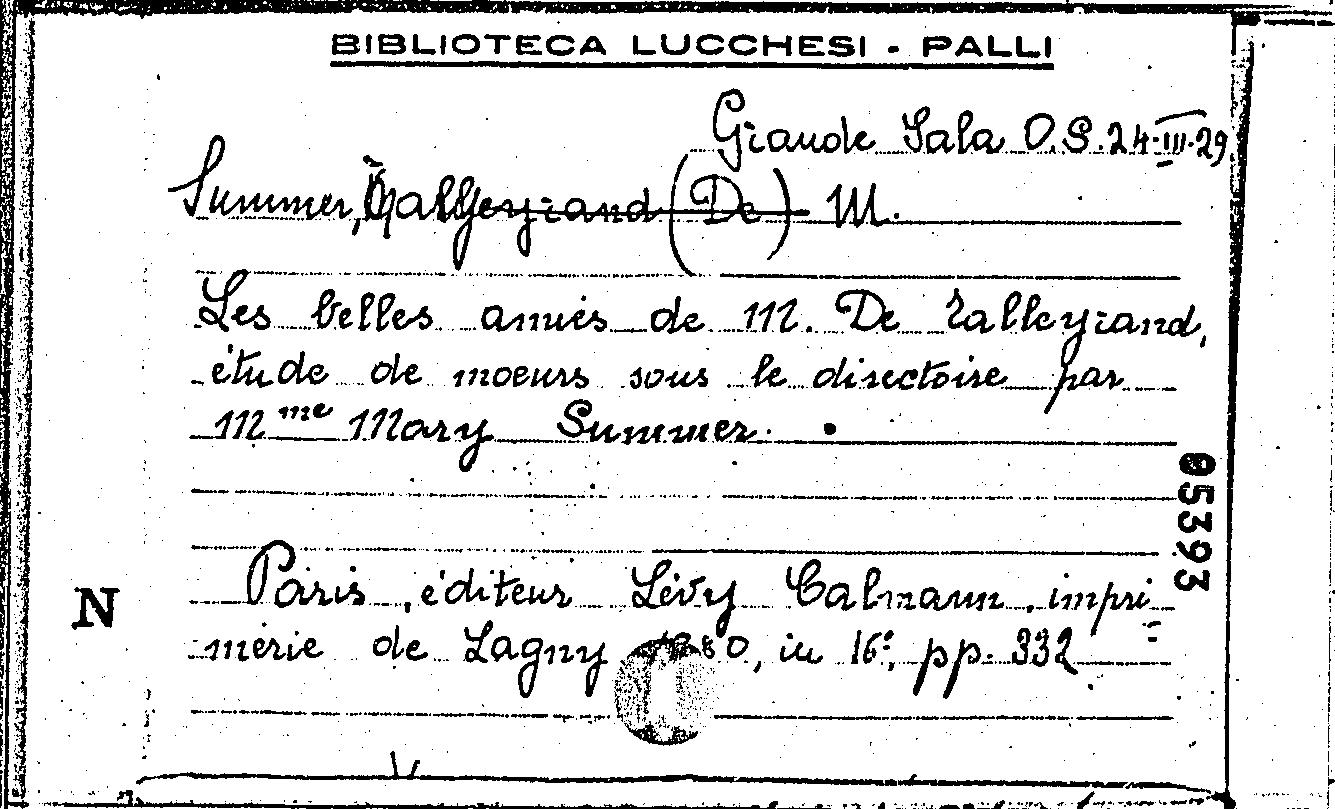 BIBLIOTECA LUCCHESI - PALLI
Grande Sala O.S. 24-III-29
Summer, Talleyrand (De) M.
Les belles amies de M. De Talleyrand,
étude de moeurs sous le directoire par
Mme Mary Summer.
05393
N
Paris, éditeur Lévy Calmann, impri=
merie de Lagny 1880, in 16º, pp. 332